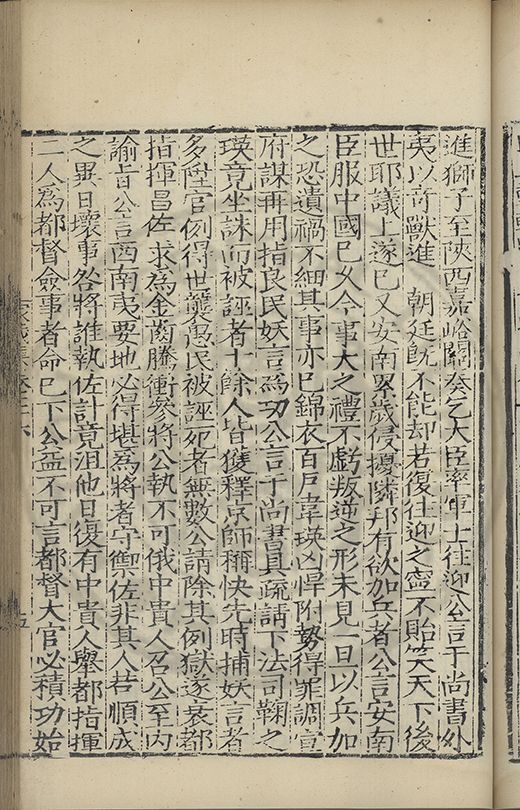 進獅子至陝西嘉峪關奏乞大臣率軍士往迎公言于尚書外
夷以奇獸進 朝廷旣不能却若復往迎之寧不貽笑天下後
世耶議上遂已又安南累歲侵擾隣邦有欲加兵者公言安南
臣服中國已久今事大之禮不虧叛逆之形未見一旦以兵加
之恐遺禍不細其事亦已錦衣百戶韋瑛凶悍附勢得罪調宣
府謀再用指良民妖言爲功公言于尚書具疏請下法司鞠之
瑛竟坐誅而被誣者十餘人皆獲釋京師稱快先時捕妖言者
多陞官例得世襲愚民被誣死者無數公請除其例獄遂衰都
指揮昌佐求爲金齒騰衝參將公執不可俄中貴人召公至内
諭旨公言西南夷要地必得堪爲將者守禦佐非其人若順成
之異日壞事咎將誰執佐計竟沮他日復有中貴人舉都指揮
二人爲都督僉事者命已下公益不可言都督大官必積功始